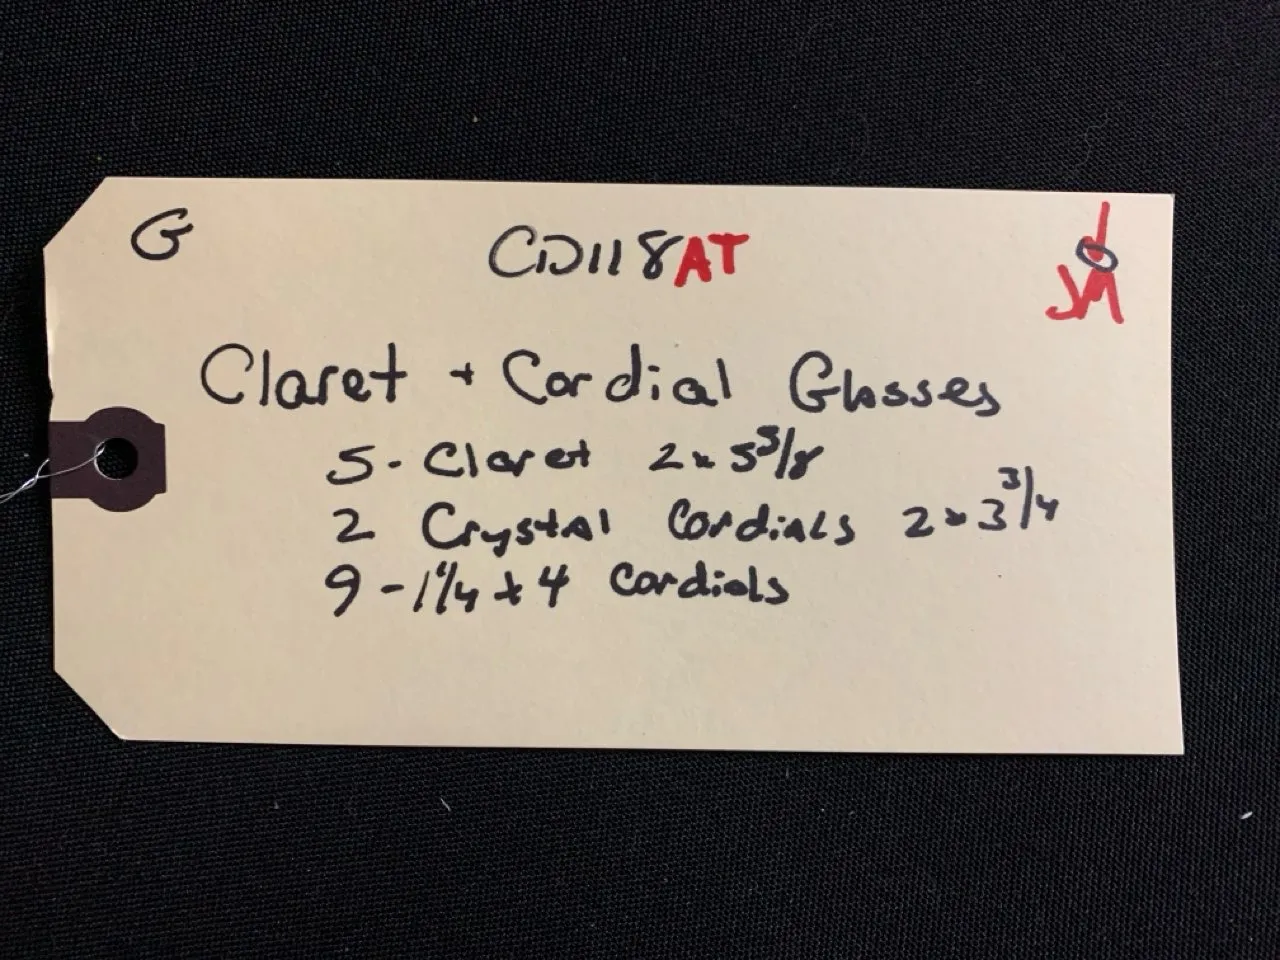 G CD118AT JM
Claret + Cordial Glasses
5 - Claret 2 x 5 3/8
2 Crystal Cordials 2 x 3 3/4
9 - 1 1/4 x 4 Cordials